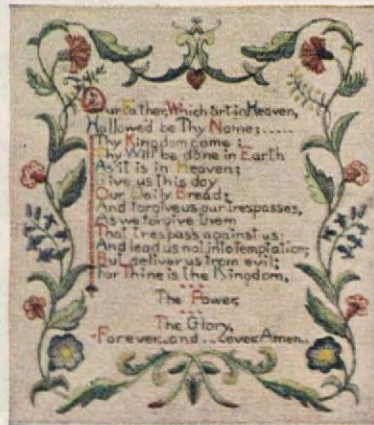 Our Father, Which art in Heaven,
Hallowed be Thy Name;.....
Thy Kingdom come;
Thy Will be done in Earth
As it is in Heaven;
Give us this day
Our Daily Bread;
And forgive us our trespasses,
As we forgive them
That trespass against us:
And lead us not into Temptation;
But deliver us from evil;
For Thine is the Kingdom,
The Power,
The Glory,
Forever..and...ever.Amen..